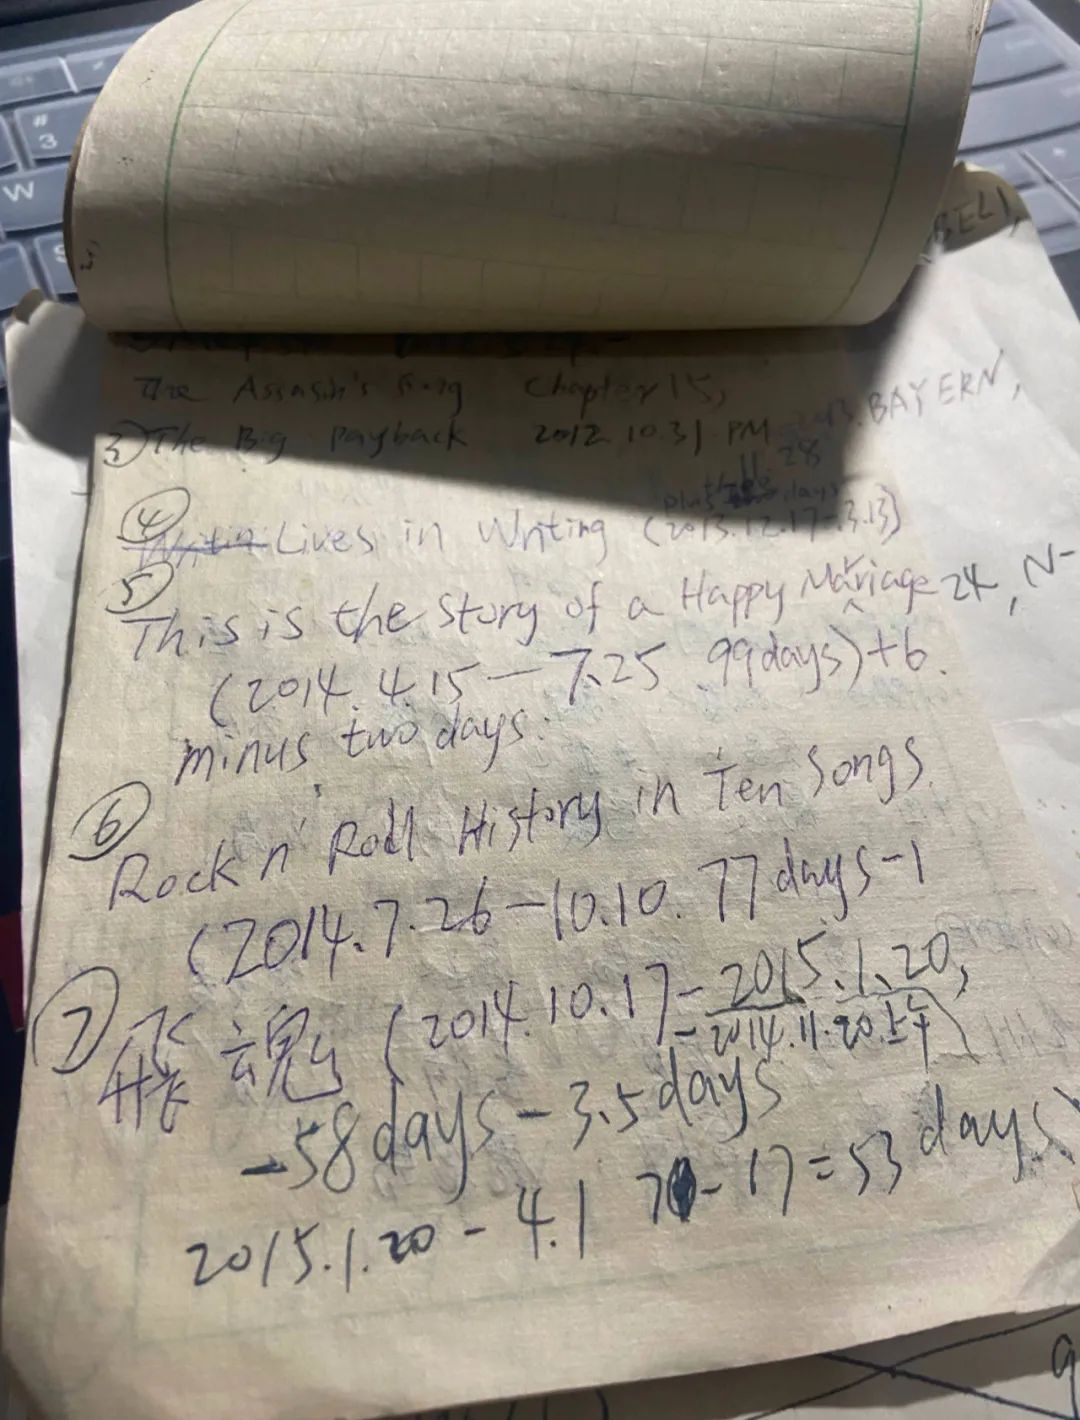 BEL),
The Assasin's Song Chapter 15,
③ The Big Payback 2012.10.31.PM
BAYERN,
11.28
④
Lives in Writing (2013.12.17-3.13)
plus days
⑤
This is the Story of a Happy Marriage 24, N-
(2014.4.15—7.25 99days)+6.
minus two days.
⑥
Rock n' Roll History in Ten Songs.
(2014.7.26-10.10. 77days-1
⑦ 魂 (2014.10.17-2015.1.20,
-2014.11.20.上午)
-58days-3.5days
2015.1.20-4.1 70-17=53days)
9